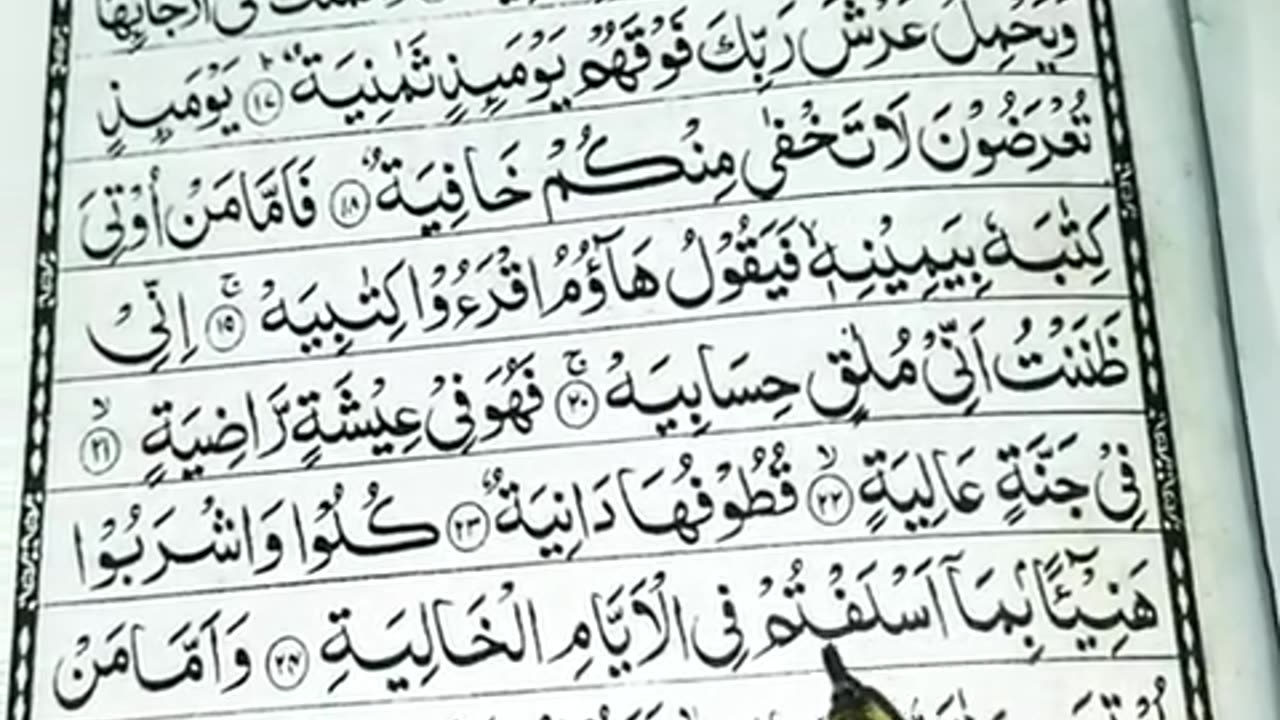 وَيَحْمِلُ عَرْشَ رَبِّكَ فَوْقَهُمْ يَوْمَىِٕذٍ ثَمٰنِيَةٌ ۝١٧ يَوْمَىِٕذٍ
تُعْرَضُوْنَ لَا تَخْفٰى مِنْكُمْ خَافِيَةٌ ۝١٨ فَاَمَّا مَنْ اُوْتِيَ
كِتٰبَهٗ بِيَمِيْنِهٖ ۙ فَيَقُوْلُ هَآؤُمُ اقْرَءُوْا كِتٰبِيَهْ ۚ ۝١٩ اِنِّيْ
ظَنَنْتُ اَنِّيْ مُلٰقٍ حِسَابِيَهْ ۚ ۝٢٠ فَهُوَ فِيْ عِيْشَةٍ رَّاضِيَةٍ ۙ ۝٢١
فِيْ جَنَّةٍ عَالِيَةٍ ۙ ۝٢٢ قُطُوْفُهَا دَانِيَةٌ ۝٢٣ كُلُوْا وَاشْرَبُوْا
هَنِيْٓـًٔا بِمَآ اَسْلَفْتُمْ فِي الْاَيَّامِ الْخَالِيَةِ ۝٢٤ وَاَمَّا مَنْ